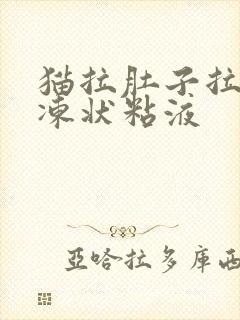 猫拉肚子拉
冻状粘液
亞哈拉多庫西